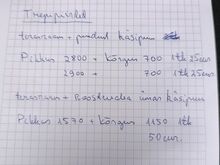 Trepipiirded
terasraam + puidust käsipuu
Pikkus 2800 + kõrgus 700 1tk 25cm
2900 + 700 1tk 25cm
terasraam + Roosteraba ümar käsipuu
Pikkus 1570 + kõrgus 1150 1tk
50cm.